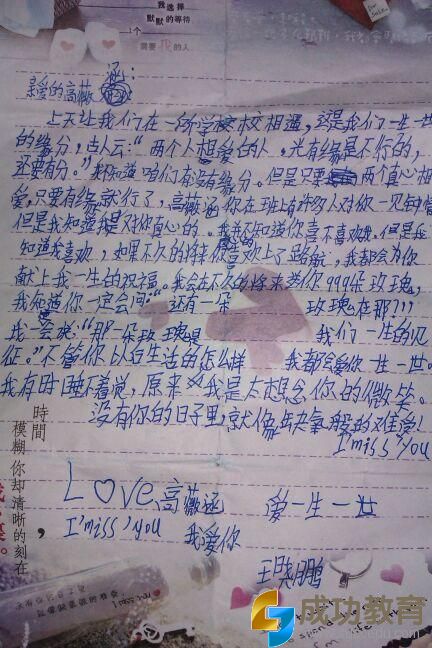 我选择
默默的等待
1个
需要我的人
亲爱的高薇涵:
上天让我们在一所学校相遇,这是我们一生一世
的缘分,古人云:"两个人想爱的人,光有缘是不行的,
还要有分。"我知道咱们有没有缘分。但是只要两个真心相
爱,只要有缘就行了,高薇涵你在班上有许多人对你一见钟情
但是我知道我是对你真心的。我不知道你喜不喜欢我,但是我
知道我喜欢,如果不久的将来你喜欢上了,我都会为你
献上我一生的祝福。我会在不久的将来送你999朵玫瑰,
我知道你一定会问"还有一朵玫瑰在那???
我会说:"那一朵玫瑰是我们一生的见
证。"不管你以后生活的怎么样我都会爱你一生一世。
我有时睡不着觉,原来我是太想念你的微笑。
没有你的日子里,就像缺氧般的难受
I'miss'you
Love高薇涵爱一生一世
I'miss'you我爱你
王晓鹏
時間,
模糊你却清晰的刻在
成功教育